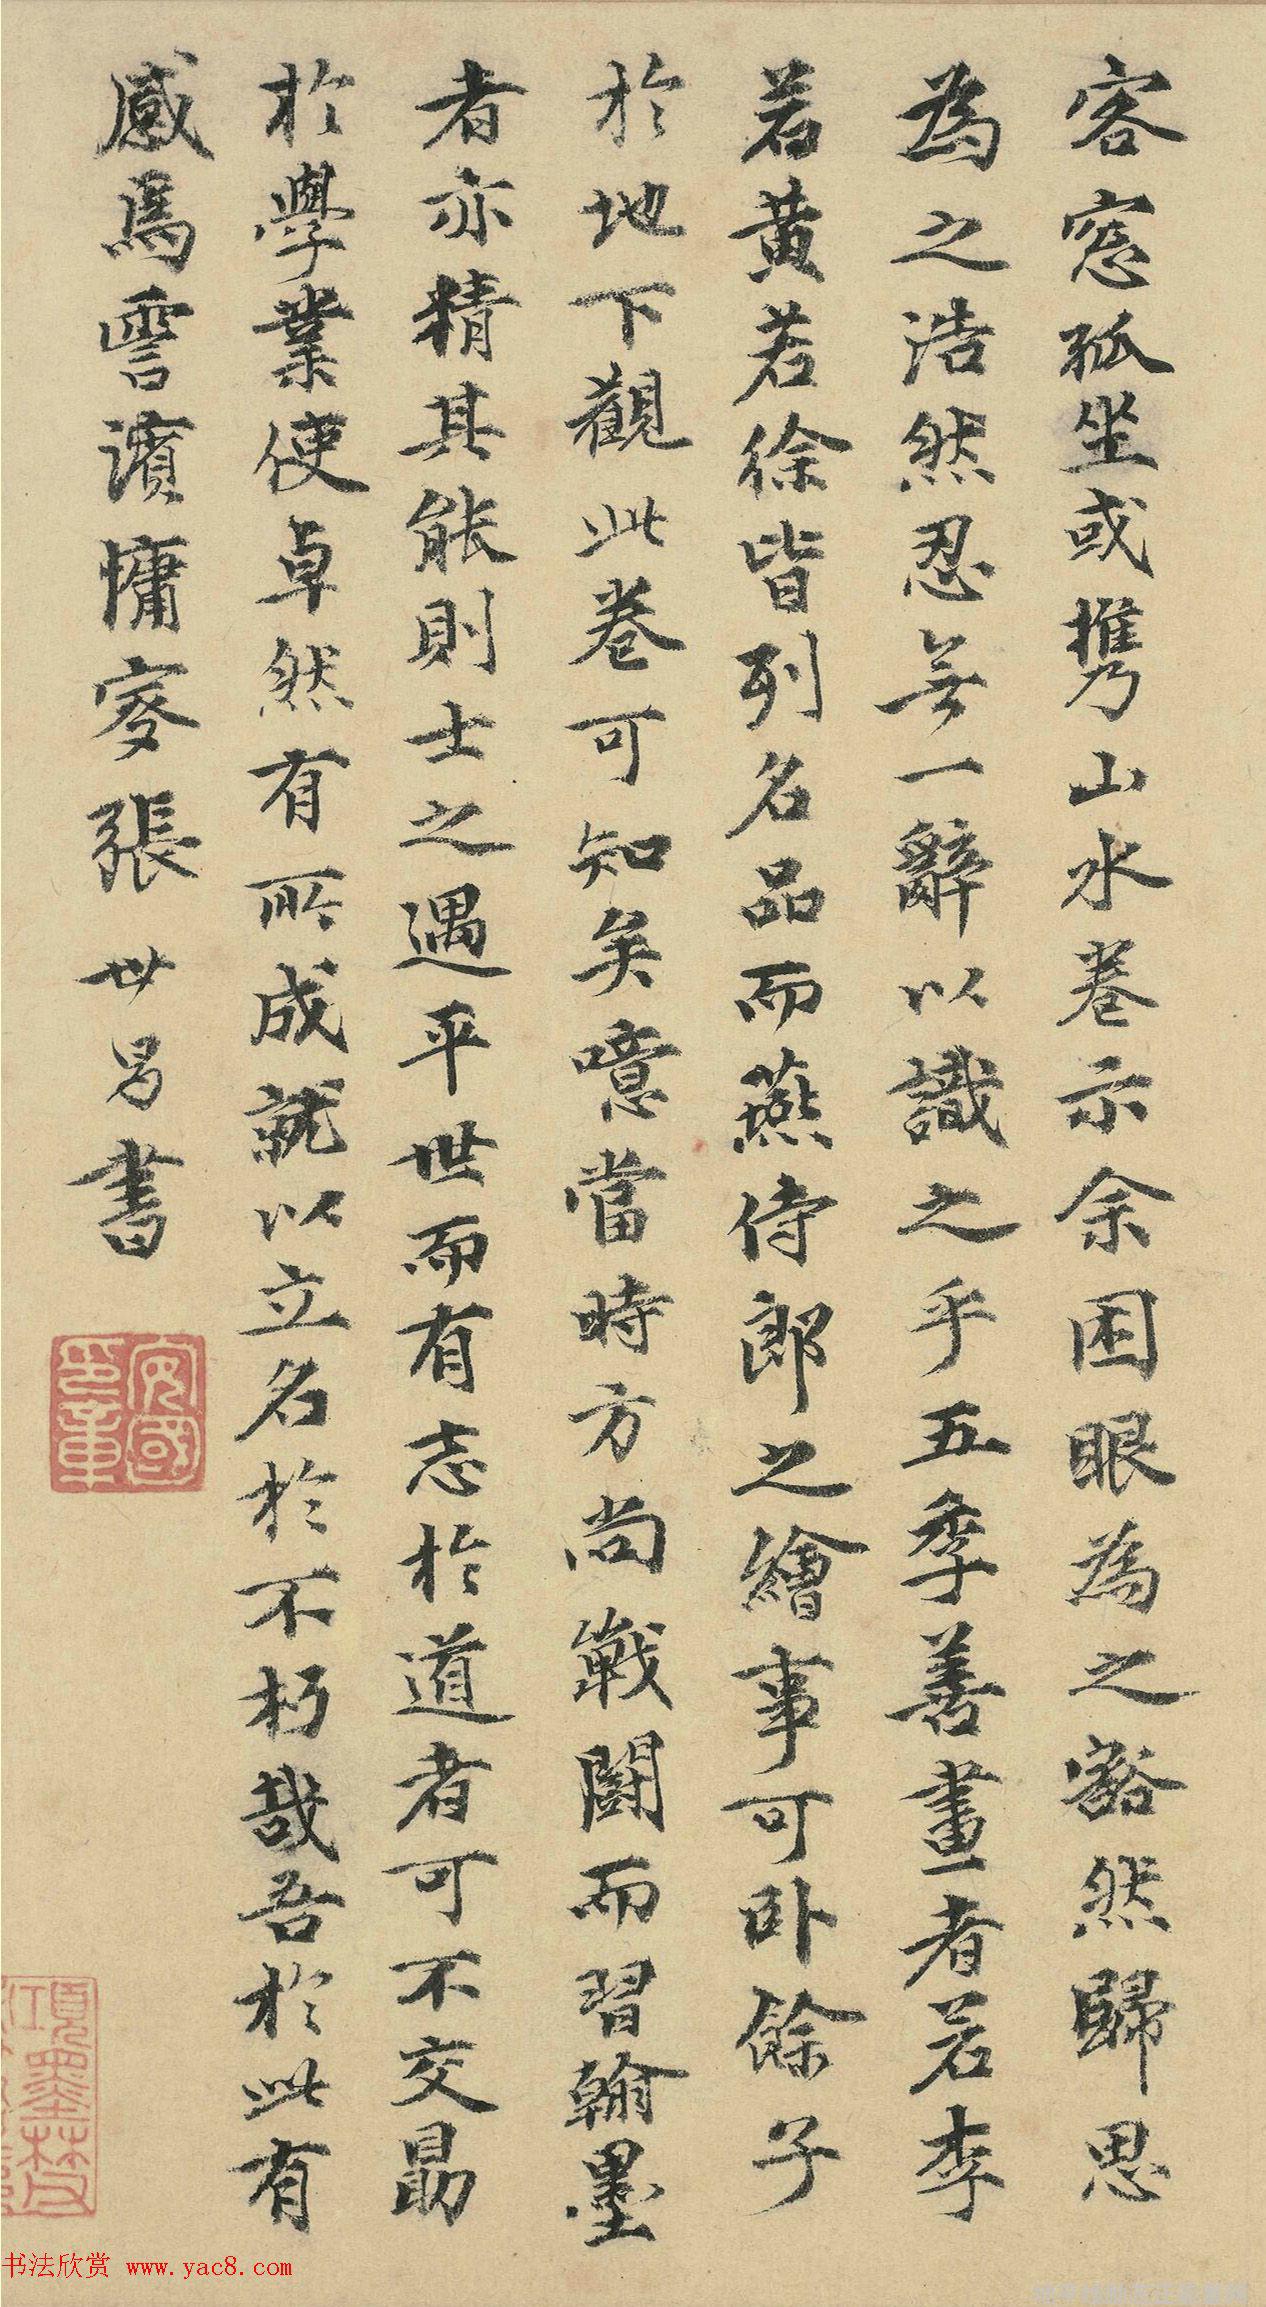 客窓孤坐或携山水卷示余困眼為之豁然歸思
為之浩然忍無一辭以識之乎五季善畫者若李
若黃若徐皆列名品而燕侍郎之繪事可卧餘子
於地下觀此卷可知矣噫當時方尚戰鬪而習翰墨
者亦精其能則士之遇平世而有志於道者可不交勗
於學業使卓然有所成就以立名於不朽哉吾於此有
感焉雪濱慵叟張世昌書
安國
印章
項墨林父
書法欣赏 www.yac8.com